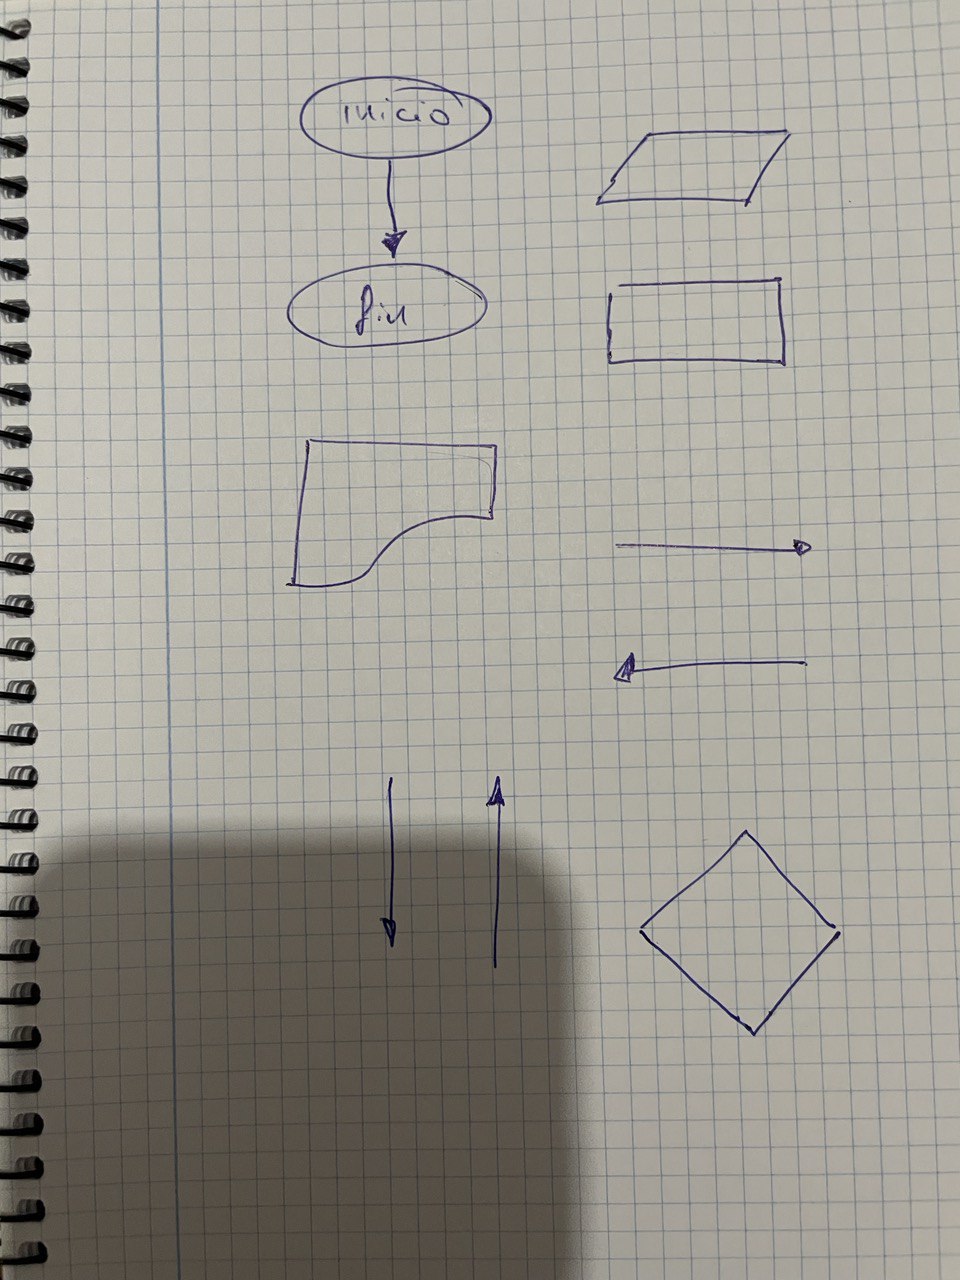 inicio
fin